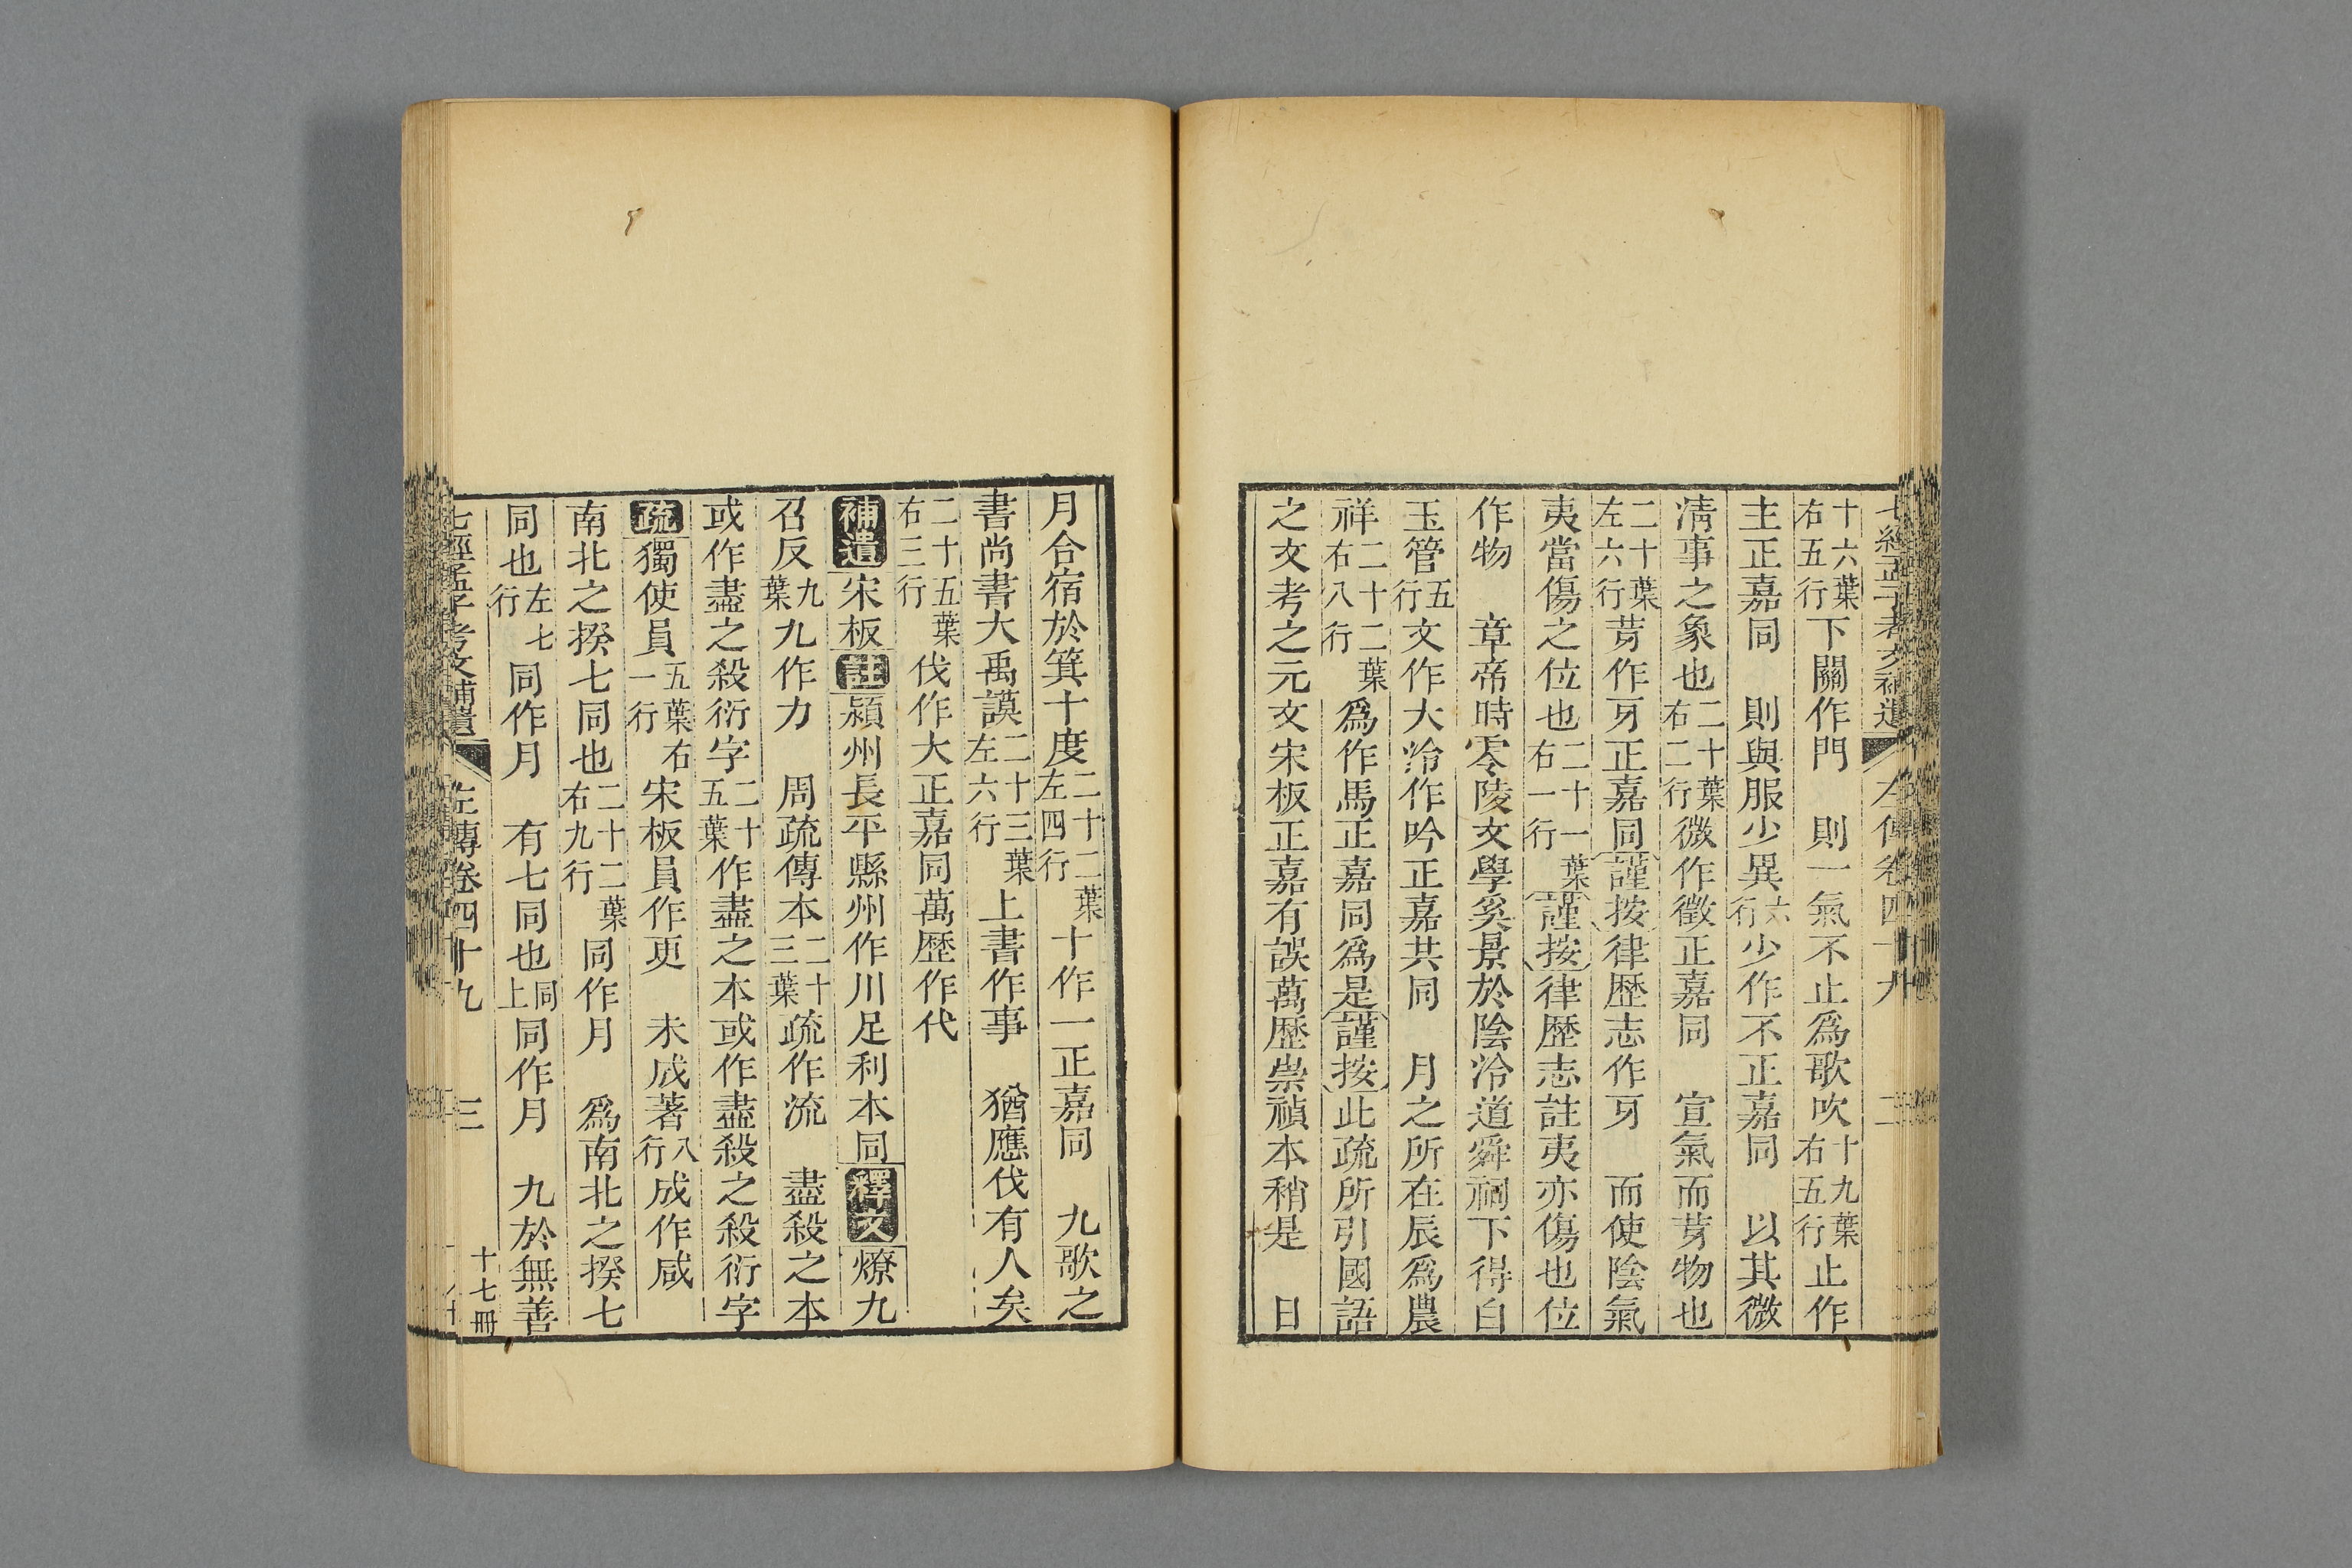 七經孟子考文補遺 左傳卷四十九 二
十六葉右五行下關作門 則一氣不止爲歌吹十九葉右五行止作
主正嘉同 則與服少異六行少作不正嘉同 以其微
凊事之象也二十葉右二行微作徵正嘉同 宣氣而芽物也
二十葉左六行芽作牙正嘉同謹按律歷志作牙 而使陰氣
夷當傷之位也二十一葉右一行謹按律歷志註夷亦傷也位
作物 章帝時零陵文學奚景於陰泠道舜祠下得白
玉管五行文作大泠作吟正嘉共同 月之所在辰爲農
祥二十二葉右八行爲作馬正嘉同爲是謹按此疏所引國語
之文考之元文宋板正嘉有誤萬歷崇禎本稍是 日
月合宿於箕十度二十二葉左四行十作一正嘉同 九歌之
書尚書大禹謨二十三葉左六行上書作事 猶應伐有人矣
二十五葉右三行伐作大正嘉同萬歷作代
補遺宋板註潁州長平縣州作川足利本同釋文燎九
召反九葉九作力 周疏傳本二十三葉疏作流 盡殺之本
或作盡之殺衍字二十五葉作盡之本或作盡殺之殺衍字
疏獨使員五葉右一行宋板員作更 未成著八行成作咸
南北之揆七同也二十二葉右九行同作月 爲南北之揆七
同也左七行同作月 有七同也同上同作月 九於無善
七經孟子考文補遺 左傳卷四十九 三 十七冊